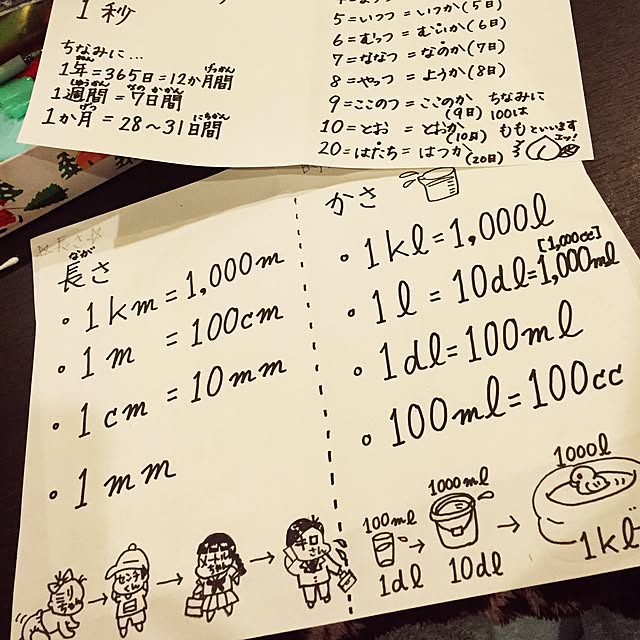 1秒
ちなみに...
1年=365日=12か月間
1週間=7日間
1か月=28〜31日間
5=いつつ=いつか(5日)
6=むっつ=むいか(6日)
7=ななつ=なのか(7日)
8=やっつ=ようか(8日)
9=ここのつ=ここのか(9日)
10=とお=とおか(10日)
20=はたち=はつか(20日)
ちなみに
100は
ももといいます
エッ!
☆長さ☆
長さ
・1km=1,000m
・1m=100cm
・1cm=10mm
・1mm
ミリちゃん
→
センチくん
→
メートルちゃん
→
キロさん
かさ
・1kl=1,000l
・1l=10dl=1,000ml
[1,000cc]
・1dl=100ml
・100ml=100cc
100ml
1dl
→
1000ml
10dl
→
1000l
1kl